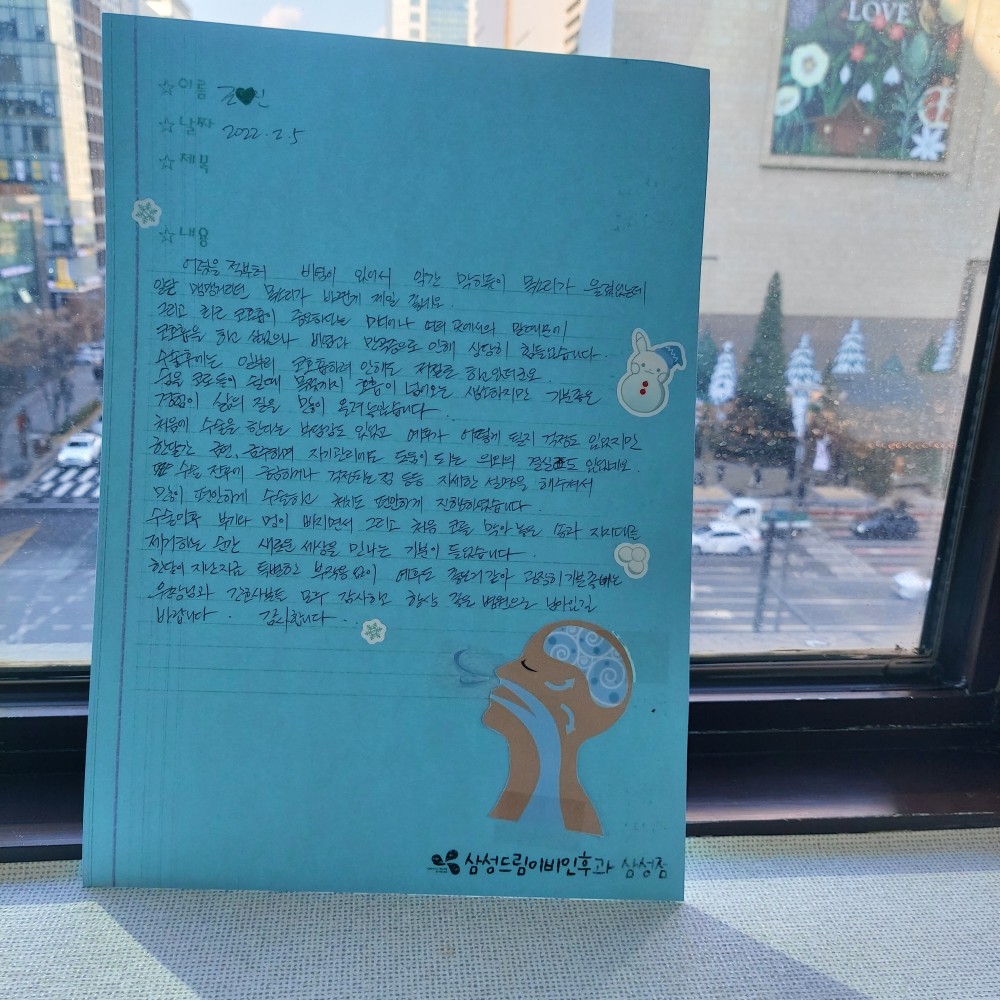 LOVE
☆이름 조♥인
☆날짜 2022. 2. 5
☆제목
☆내용
어렸을 적부터 비염이 있어서 약간 막힌듯이 목소리가 울렸었는데
일단 맹맹거리던 목소리가 바뀐게 제일 큽니다.
그리고 최근 코호흡이 중요하다는 말때문에
코호흡을 하고 싶었으나 비염과 만곡증으로 인해 상당히 힘들었습니다.
수술후에는 일부러 코호흡하려 안해도 저절로 하고있더라고요
숨을 코로 들이 쉴때 목끝까지 호흡이 넘어오는 생소하지만 기분좋은
경험이 삶의 질을 많이 올려놓았습니다
처음이 수술을 한다는 부담감도 있었고 예후가 어떻게 될지 걱정도 있었지만
한달간 금연, 금주하며 자기관리에도 도움이 되는 의외의 결실도 있었네요.
수술 전후에 궁금하거나 걱정되는 점 등을 자세한 설명을 해주셔서
많이 편안하게 수술하고 처치도 편안하게 진행하였습니다.
수술이후 붓기와 멍이 빠지면서 그리고 처음 코를 막아 놓은 솜과 지지대를
제거하는 순간 새로운 세상을 만나는 기분이 들었습니다.
한달이 지난 지금 특별한 부작용 없이 예후도 좋은거 같아 굉장히 기분좋네요
원장님과 간호사분들 모두 감사하고 항상 좋은 병원으로 남아있길
바랍니다. 감사합니다.
삼성드림이비인후과 삼성점